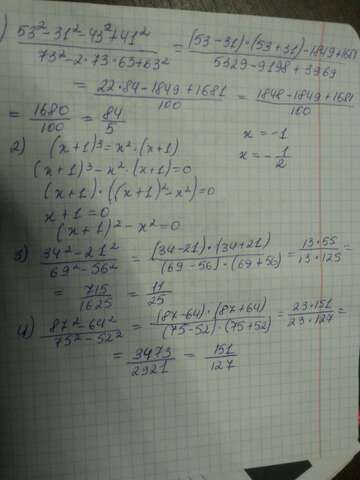 ) (53²-31²-43²+41²)/(73²-2·73·63+63²) = ((53-31)·(53+31)-1849+1681)/(5329-9198+3969)
= (22·84-1849+1681)/100 = (1848-1849+1681)/100
= 1680/100 = 84/5
x = -1
2) (x+1)³ = x²·(x+1)
x = -1/2
(x+1)³-x²·(x+1)=0
(x+1)·((x+1)²-x²)=0
x+1=0
(x+1)²-x²=0
3) (34²-21²)/(69²-56²) = ((34-21)·(34+21))/((69-56)·(69+56)) = (13·55)/(13·125) =
= 715/1625 = 11/25
4) (87²-64²)/(75²-52²) = ((87-64)·(87+64))/((75-52)·(75+52)) = (23·151)/(23·127) =
= 3473/2921 = 151/127